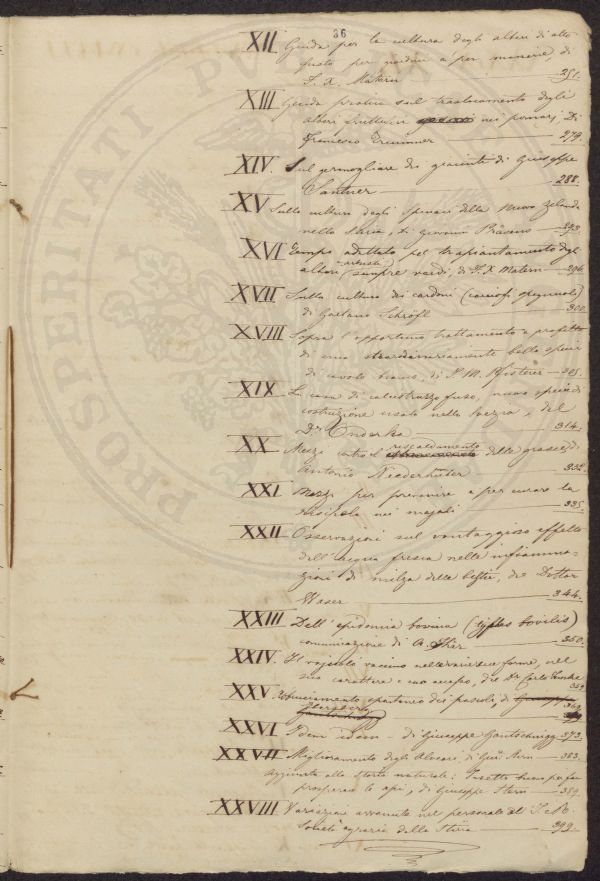 86
XII Guida per la cultura degli alberi di alto
fusto per nordici e per maniere, di
F. X. Matern — 251.
XIII Guida pratica sul traslocamento degli
alberi fruttiferi nei pomarj, di
Francesco Trummer — 279.
XIV. Sul germogliare dei giacinti di Giuseppe
Santner — 288.
XV Sulla cultura degli spinaci della Nuova Zelanda
nella Stiria, di Giovanni — 293.
XVI Tempo adattato pel trapiantamento degli
alberi sempre verdi, di F. X. Matern — 296.
XVII Sulla cultura dei cardoni (carciofi spagnuoli)
di Gaetano Schröfl — 300.
XVIII Sopra l'opportuno trattamento e profitto
di una straordinariamente bella specie
di cavolo bianco, di P. M. Pfisterer — 305.
XIX La casa di calcistruzzo fuso, nuova specie di
costruzione usata nella Svezia, del
Dr. Onderka — 314.
XX Mezzi contro il riscaldamento delle granaglie, di
Antonio Niederhuber — 332.
XXI Mezzi per prevenire e per curare la
risipola nei majali — 335.
XXII Osservazioni sul vantaggioso effetto
dell'acqua fresca nelle infiamma-
zioni di milza delle bestie, del Dottor
Waser — 344.
XXIII Dell'epidemia bovina (typhus bovilis)
comunicazione di A. — 350.
XXIV. Il vajuolo vaccino nelle varie sue forme, nel
suo carattere e suo decorso, di Dr. Carlo
XXV. spontaneo dei pascoli, di Giuseppe
369.
XXVI Idem idem — di Giuseppe Gautschnigg 373.
XXVII Miglioramento degli Alveari, di Giu. Stern — 383.
Aggiunta alla storia naturale: Insetto buono per far
prosperare le api, di Giuseppe Stern — 389.
XXVIII Variazioni avvenute nel personale dell' I. R.
Società agraria della Stiria — 399.
PROSPERITATI PUBLICAE